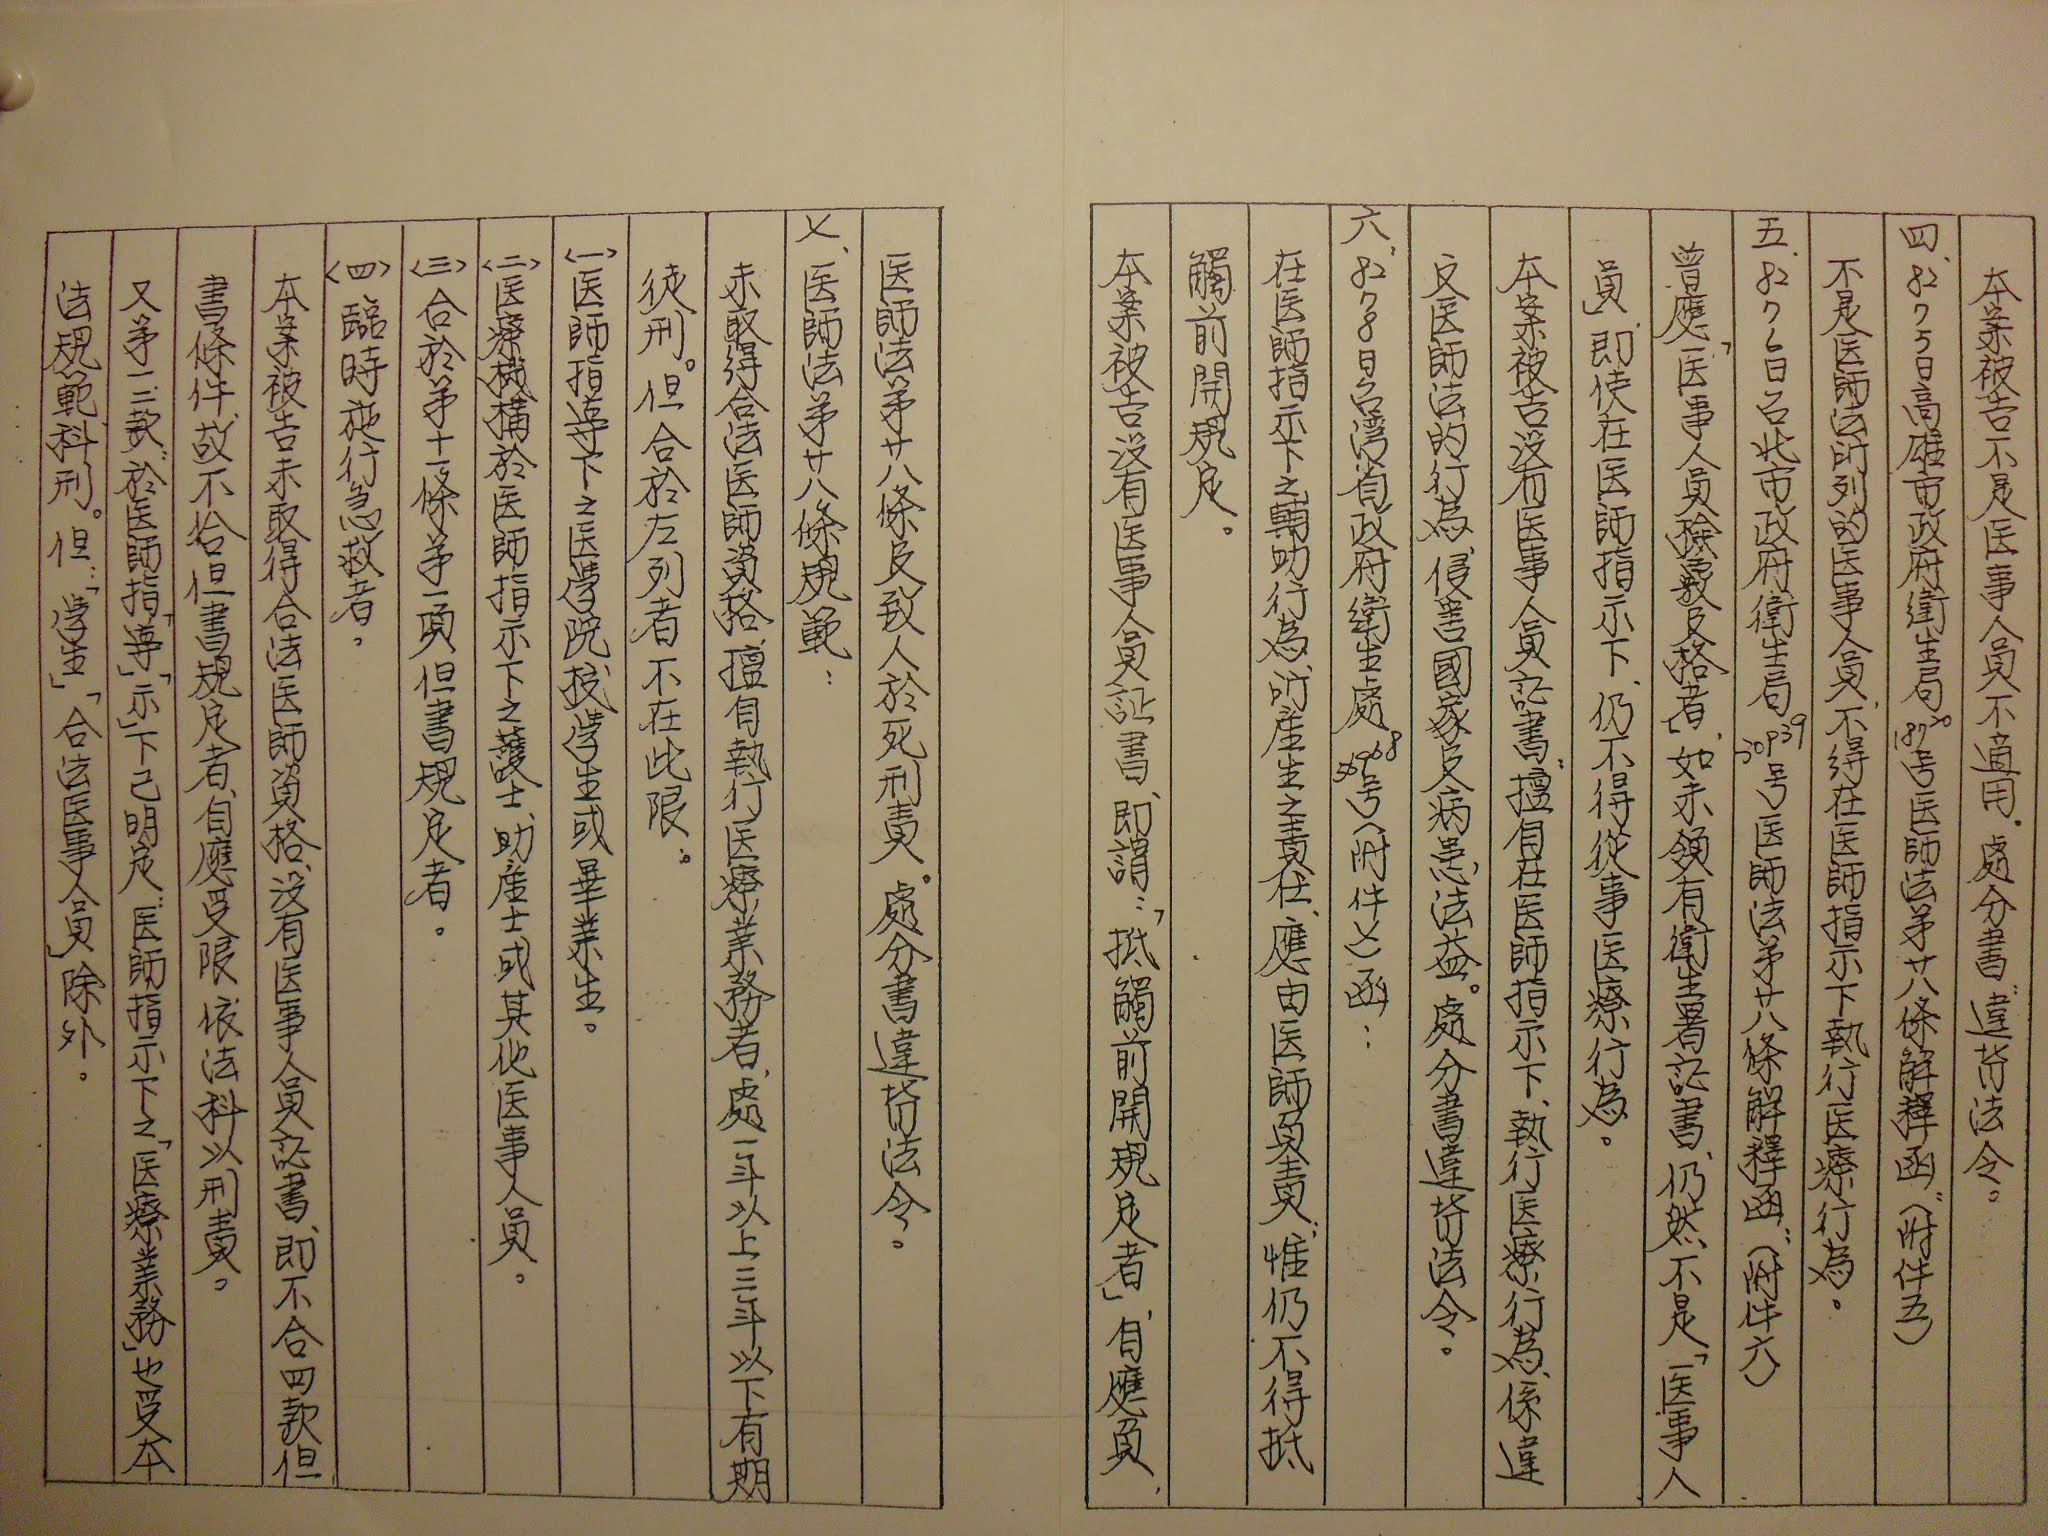 本案被告不是医事人員不適用。處分書違背法令。
四、82 7 5日高雄市政府衛生局18720号医師法第廿八條解釋函"(附件五)
不是医師法所列的医事人員、不得在医師指示下執行医療行為。
五、82 7 6日台北市政府衛生局30939号医師法第廿八條解釋函"(附件六)
曾應「医事人員檢覈及格者」、如未領有衛生署証書、仍然不是「医事人
員」、即使在医師指示下、仍不得從事医療行為。
本案被告没有医事人員証書、擅自在医師指示下、執行医療行為、係違
反医師法的行為、侵害國家及病患、法益。處分書違背法令。
六、82 7 8日台湾省政府衛生處 号(附件七)函：
在医師指示下之輔助行為、所産生之責任、應由医師負責、惟仍不得抵
觸前開規定。
本案被告没有医事人員証書、即謂：「抵觸前開規定者」、自應負
医師法第廿八條及致人於死刑責。處分書違背法令。
七、医師法第廿八條規範：
未取得合法医師資格、擅自執行医療業務者、處一年以上三年以下有期
徒刑。但合於左列者不在此限。
(一)医師指導下之医學院校學生或畢業生。
(二)医療機構於医師指示下之護士、助産士或其他医事人員。
(三)合於第十一條第一項但書規定者。
(四)臨時施行急救者。
本案被告未取得合法医師資格、没有医事人員証書、即不合四款但
書條件、故不合但書規定者、自應受限依法科以刑責。
又第一二款"於医師指「導」「示」下已明定"医師指示下之「医療業務」也受本
法規範、科刑。但：「學生」「合法医事人員」除外。